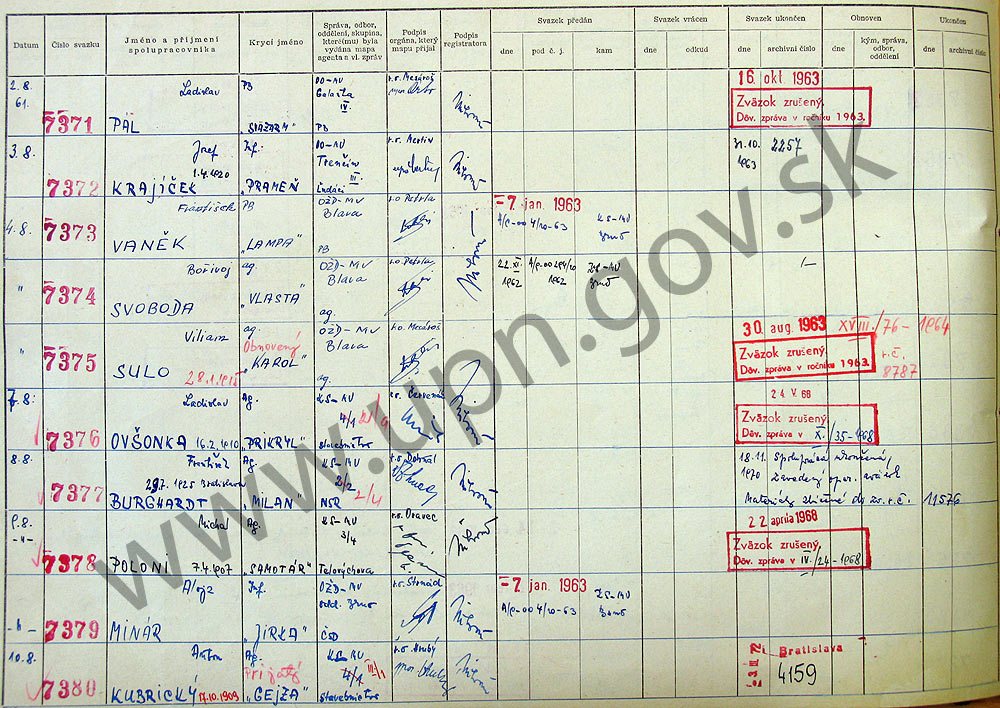 Datum
Číslo svazku
Jméno a příjmení spolupracovníka
Krycí jméno
Správa, odbor, oddělení, skupina, které(mu) byla vydána mapa agenta n vl. zpráv
Podpis orgána, který mapu přijal
Podpis registratora
Svazek předán
dne
pod č. j.
kam
Svazek vrácen
dne
odkud
Svazek ukončen
dne
archivní číslo
Obnoven
dne
kým, správa, odbor, oddělení
Ukončen
dne
archivní číslo
2.8. 61.
7371
Ladislav
PÁL
PB
"SVÄZARM"
OO-MV
Galanta
IV.
PB
16. okt. 1963
Zväzok zrušený.
Dôv. zpráva v ročníku 1963.
3.8.
7372
Jozef
1.4.1920
KRAJÍČEK
Inf.
"PRAMEŇ"
OO-MV
Trenčín
III.
31.10. 1963
2257
4.8.
7373
František
VANĚK
PB
"LAMPA"
OŽD-MV
Blava
PB
r.o Petrla
-7. jan. 1963
A/p-004/10-63
KS-MV
Brno
"
7374
Bořivoj
SVOBODA
ag.
"VLASTA"
OŽD-MV
Blava
ag.
r.o Petrla
22.XI. 1962
1962
KS-MV
Brno
"
7375
Viliam
SULO
28.1.1915
ag.
Obnovený
"KAROL"
OŽD-MV
Blava
ag.
30. aug. 1963
Zväzok zrušený.
Dôv. zpráva v ročníku 1963.
XVIII./76-1964
r.č.
8787
7.8.
7376
Ladislav
OVŠONKA 16.2.1910
Ag.
"PRIKRYL"
KS-MV
4/1
stavebníctvo
24 V. 68
Zväzok zrušený
Dôv. zpráva v X. /35-1968
8.8.
7377
František
29.7.1925 Bratislava
BURGHARDT
Ag.
"MILAN"
KS-MV
2/2
2/4
NSR
18.11. 1970
Spolupráca ukončená,
Zavedený oper. zväzok
Materiály zbierané do zv. r.č. 11576
9.8.
7378
Michal
POLONI 7.4.1907
Ag.
"SAMOTÁR"
KS-MV
3/4
Telovýchova
r.s. Oravec
22 apríla 1968
Zväzok zrušený.
Dôv. zpráva v IV. /24-1968
-"-
7379
Alojz
MINÁR
Inf.
"JIRKA"
OŽD-MV
odd. Brno
ČSD
-7. jan. 1963
A/p-004/10-63
KS-MV
Brno
10.8.
7380
Anton
KUBRICKÝ 17.10.1909
Ag.
Prijatý
"GEJZA"
KS-MV
4/1
III/1
stavebníctvo
r.s. Hrubý
Bratislava
4159
www.upn.gov.sk